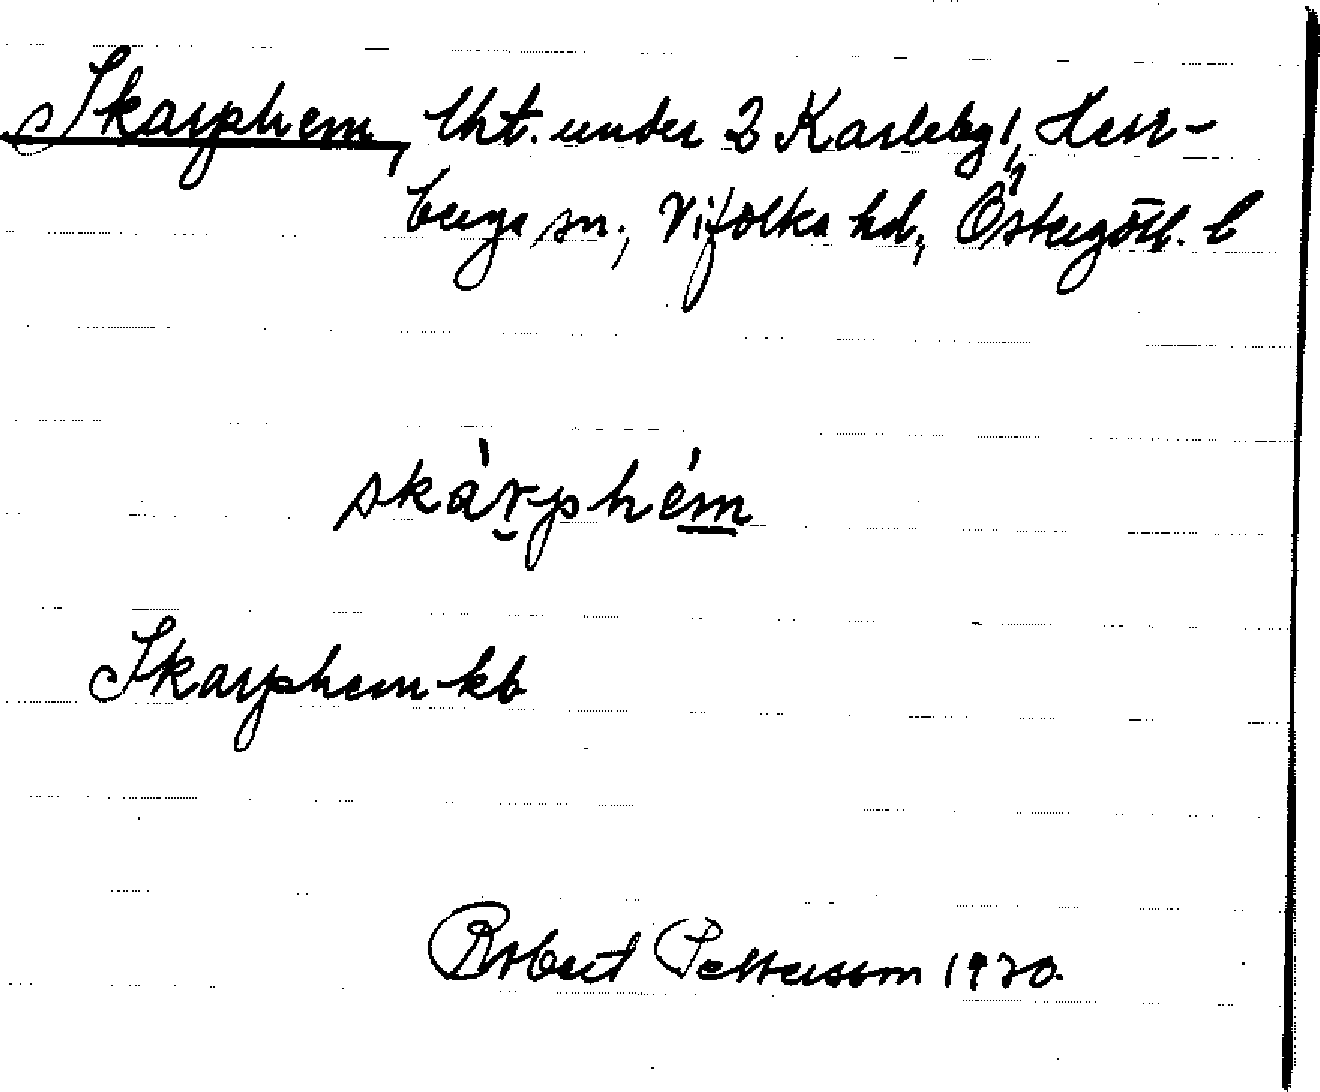 Skarphem, lht. under 2 Karleby 1, Herr-
berga sn., Vifolka hd, Östergötl. l
skàrphém
Skarphem kb
Robert Pettersson 1920.